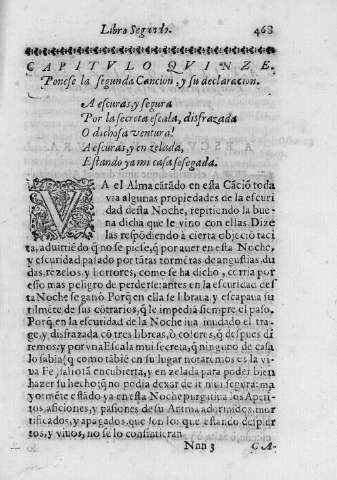 Libro Segundo. 468
CAPITVLO QVINZE.
Ponese la segunda Cancion, y su declaracion.
A escuras, y segura
Por la secreta escala, disfrazada
O dichosa ventura!
A escuras, y en zelada,
Estando ya mi casa sosegada.
VA el Alma cãtãdo en esta Cãciõ toda
via algunas propiedades de la escuri
dad desta Noche, repitiendo la bue
na dicha que le vino con ellas. Dize
las respõdiendo à cierta objeciõ taci
ta, aduirtiẽdo q̃ no se piẽse, q̃ por auer en esta Noche,
y escuridad pasado por tãtas tormẽtas de angustias, du
das, rezelos, y horrores, como se ha dicho, corria por
esso mas peligro de perderse: antes en la escuridad des
ta Noche se ganò. Porq̃ en ella se libraua, y escapaua su
tilmẽte de sus cõtrarios, q̃ le impediã siempre el paso.
Porq̃ en la escuridad de la Noche iua mudado el tra-
ge, y disfrazada cõ tres libreas, ò colores, q̃ despues di
remos; y por vna Escala mui secreta, q̃ ninguno de casa
lo sabia (q̃ como tãbiẽ en su lugar notaremos es la vi
ua Fe) saliò tã encubierta, y en zelada para poder bien
hazer su hecho; q̃ no podia dexar de ir mui segura: ma
yormẽte estãdo ya en esta Noche purgatiua los Apeti-
tos, aficiones, y pasiones de su Anima adormidos, mor
tificados, y apagados, que son los que estando despier
tos, y viuos, no se lo consintieran
Nnn 3 CA-